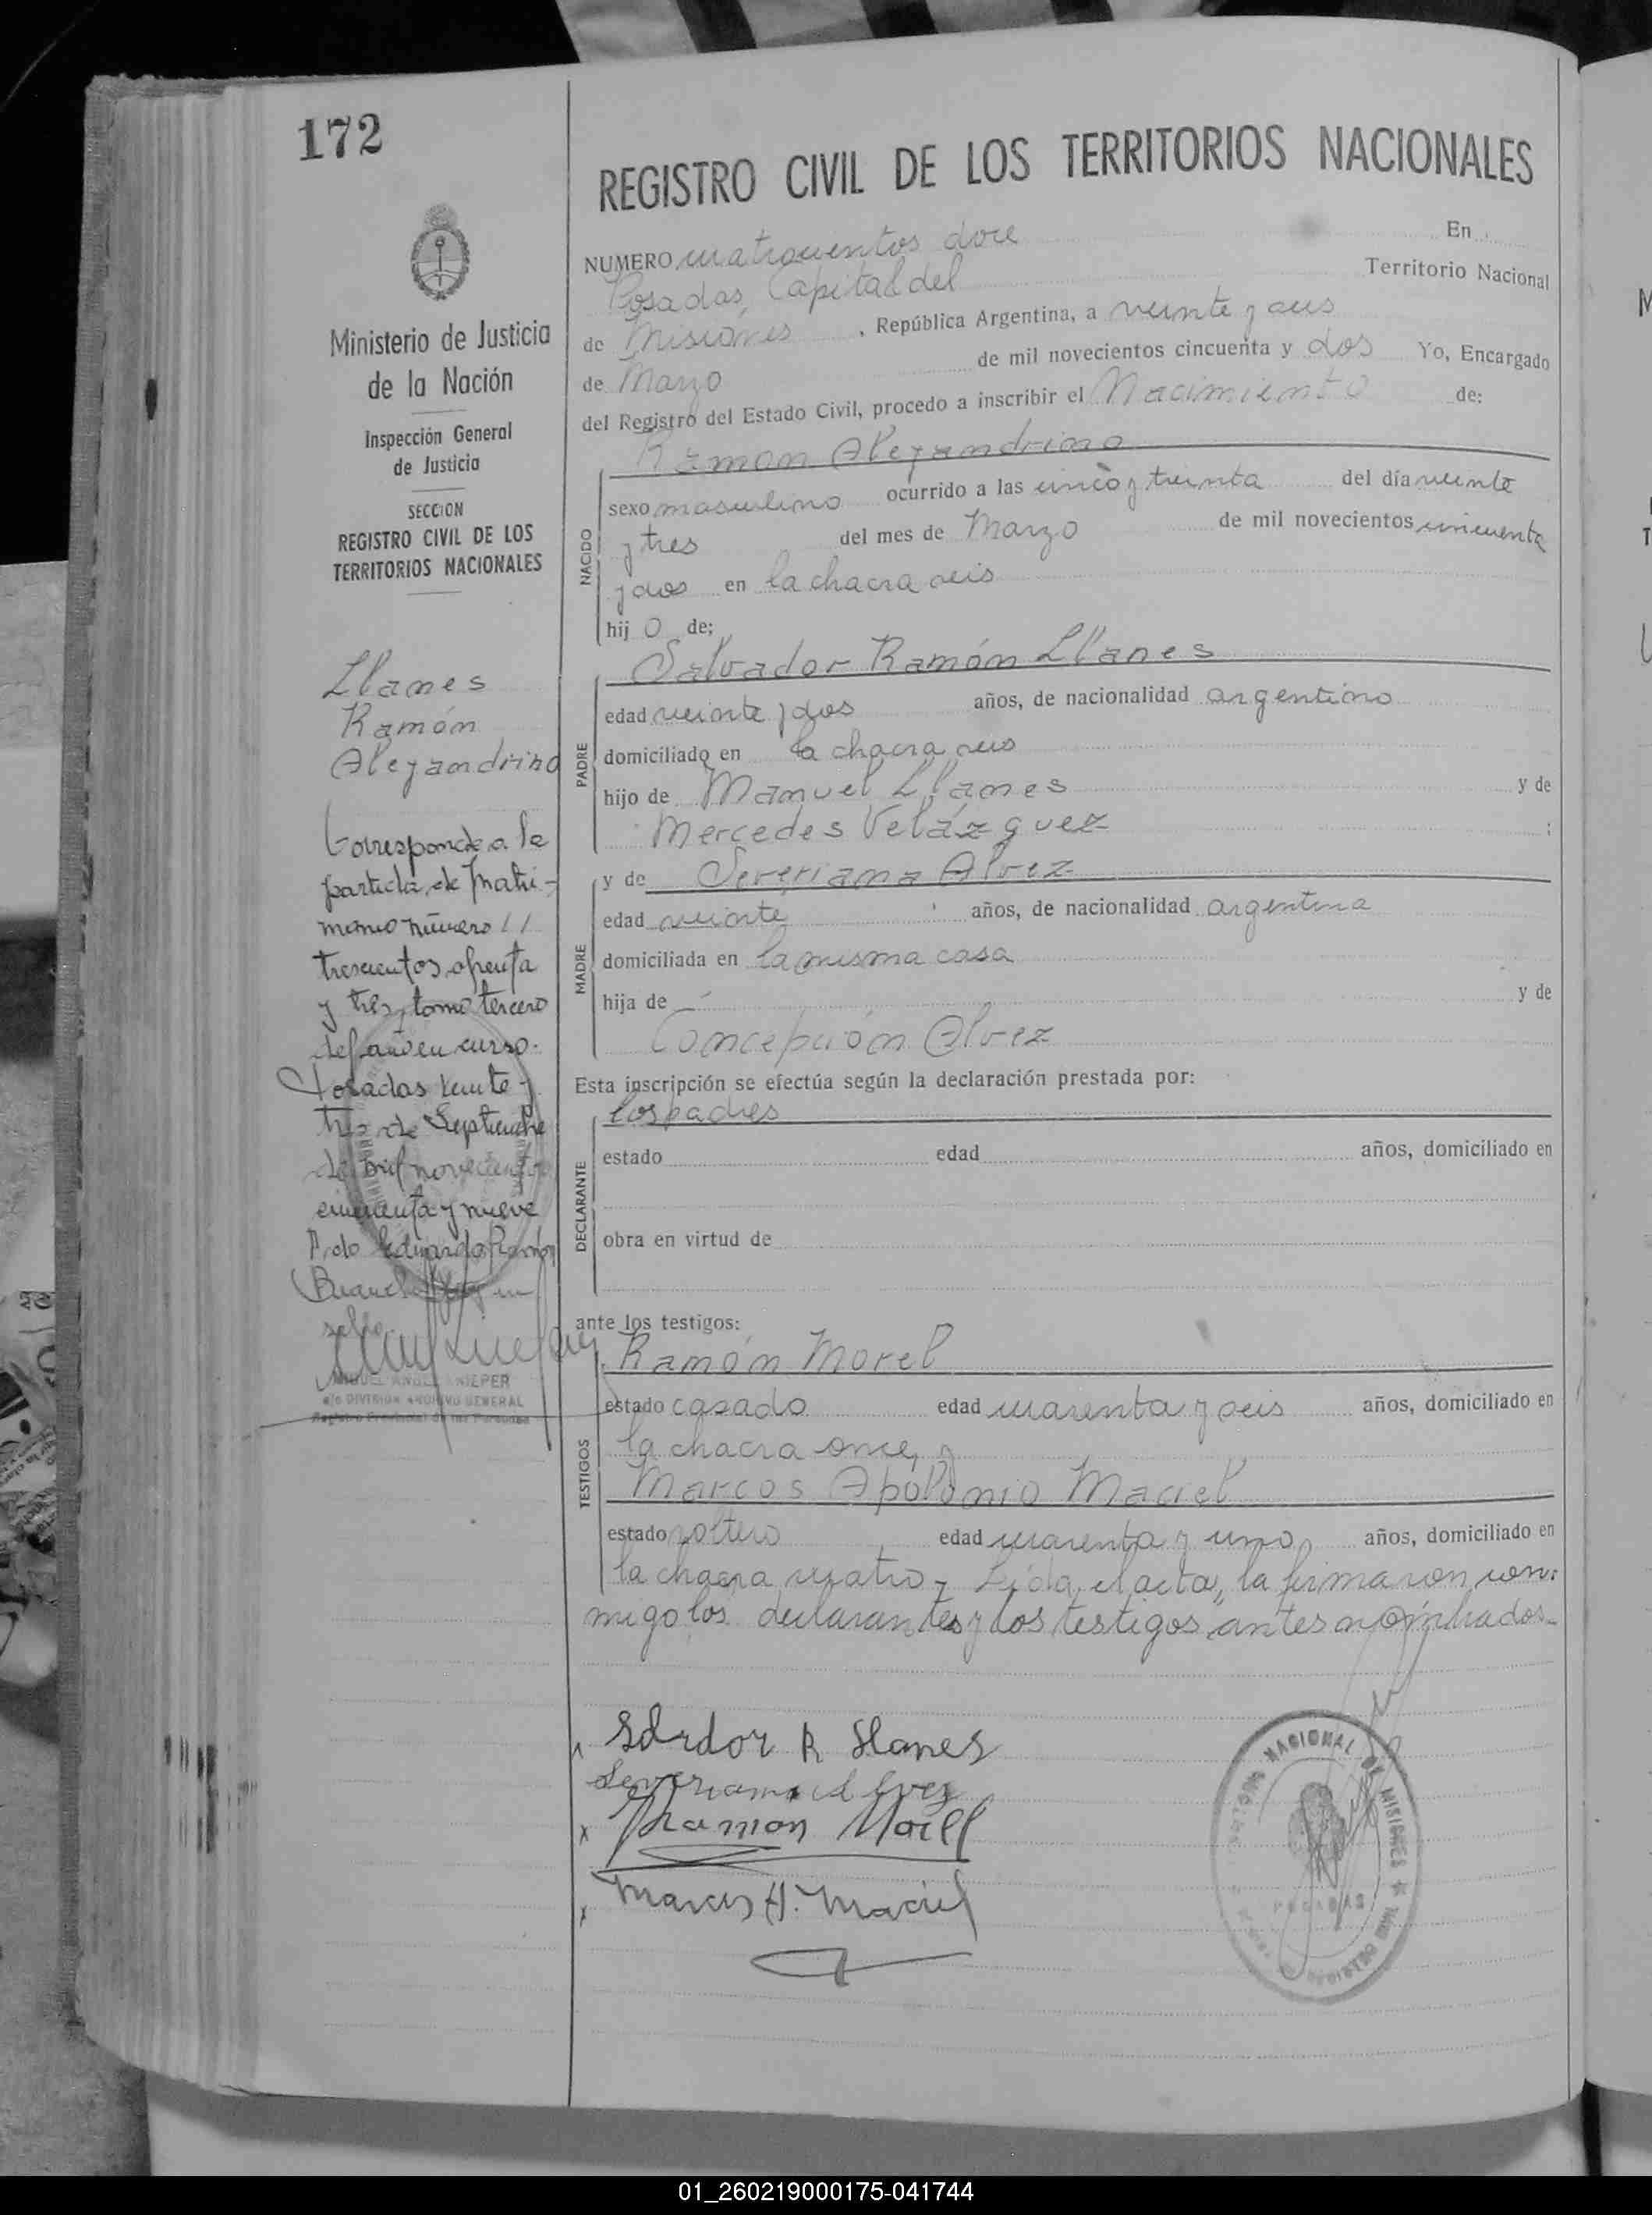 172
Ministerio de Justicia
de la Nación
Inspección General
de Justicia
SECCION
REGISTRO CIVIL DE LOS
TERRITORIOS NACIONALES
Llanes
Ramón
Alejandrino
Corresponde a la
partida de Matri-
monio número //
trescientos ochenta
y tres, tomo tercero
del año en curso.
Posadas veinte y
tres de Septiembre
de mil novecientos
cincuenta y nueve
Eduardo Ramón
sello
MIGUEL ANGEL KNIEPER
a/c DIVISION ARCHIVO GENERAL
Registro Provincial de las Personas
REGISTRO CIVIL DE LOS TERRITORIOS NACIONALES
NUMERO cuatrocientos doce En
Posadas, Capital del Territorio Nacional
de Misiones, República Argentina, a veinte y seis
de Marzo de mil novecientos cincuenta y dos Yo, Encargado
del Registro del Estado Civil, procedo a inscribir el Nacimiento de:
Ramon Alejandrino
NACIDO
sexo masculino ocurrido a las cinco y treinta del día veinte
y tres del mes de Marzo de mil novecientos cincuenta
y dos en la chacra seis
hij o de;
Salvador Ramón Llanes
PADRE
edad veinte y dos años, de nacionalidad argentino
domiciliado en la chacra seis
hijo de Manuel Llanes y de
Mercedes Velázquez ;
y de Severiana Alvez
MADRE
edad veinte años, de nacionalidad argentina
domiciliada en la misma casa
hija de — y de
Concepción Alvez
Esta inscripción se efectúa según la declaración prestada por:
los padres
DECLARANTE
estado edad años, domiciliado en
obra en virtud de
ante los testigos:
Ramón Morel
TESTIGOS
estado casado edad cuarenta y seis años, domiciliado en
la chacra once, y
Marcos Apolonio Maciel
estado soltero edad cuarenta y uno años, domiciliado en
la chacra cuatro - Leida el acta, la firmaron con-
migo los declarantes y los testigos antes nombrados-
Salvdor R Llanes
Severiana Alvez
x Ramon Morell
x Marcos A. Maciel
NACIONAL DE MISIONES
POSADAS
REGISTRO
01_260219000175-041744